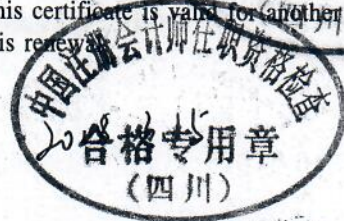 this certificate is valid for another
this renewal
中国注册会计师任职资格检查
合格专用章
(四川)